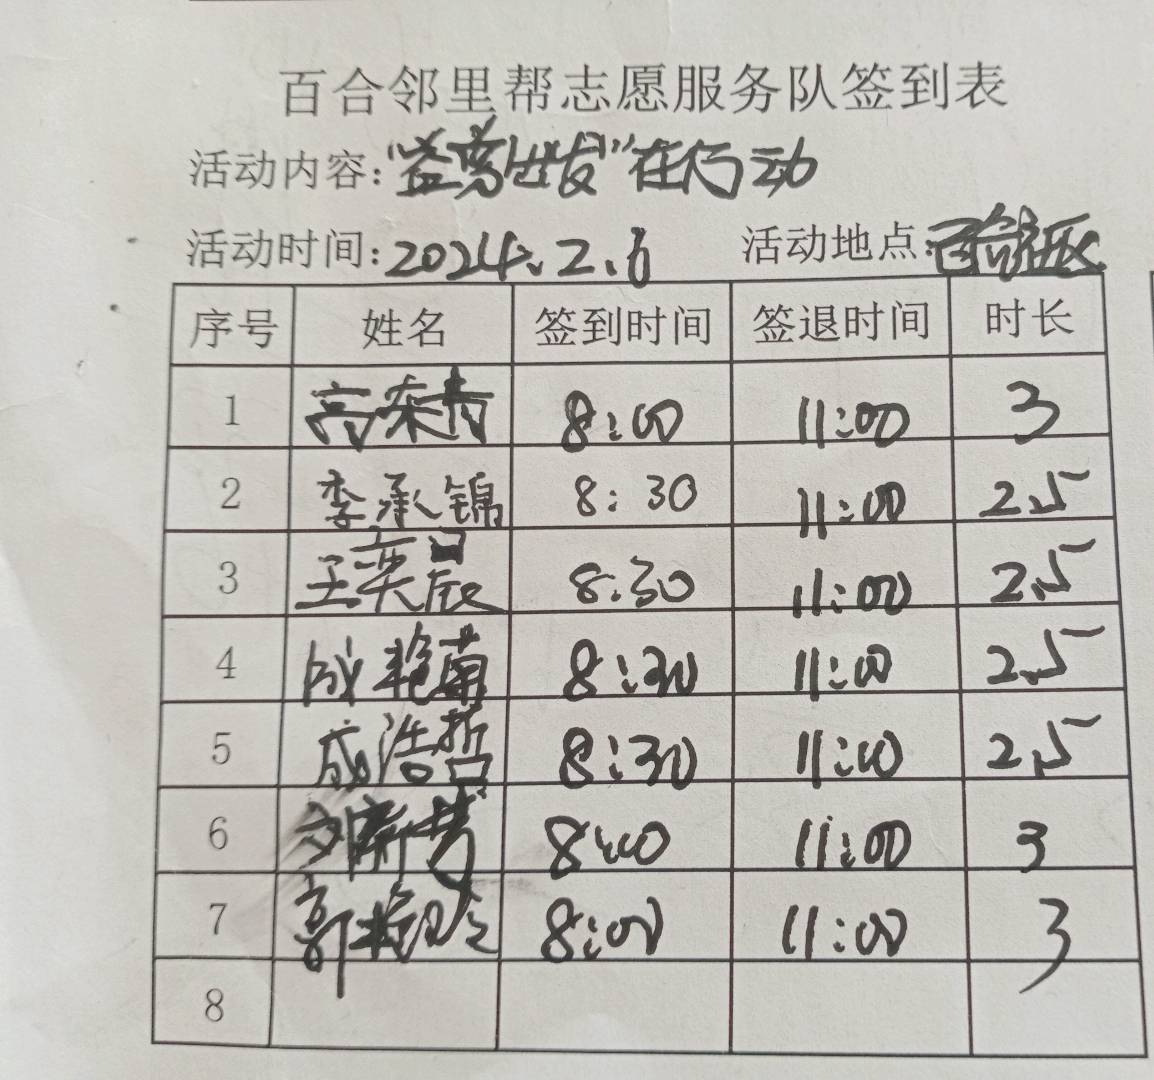 百合邻里帮志愿服务队签到表
活动内容:“益莺出发”在行动
活动时间:2024.2.6 活动地点:百合社区
序号 姓名 签到时间 签退时间 时长
1 高荣青 8:00 11:00 3
2 李承锦 8:30 11:00 2.5
3 王奕晨 8:30 11:00 2.5
4 成艳菊 8:30 11:00 2.5
5 成浩哲 8:30 11:00 2.5
6 8:00 11:00 3
7 郭艳玲 8:00 11:00 3
8